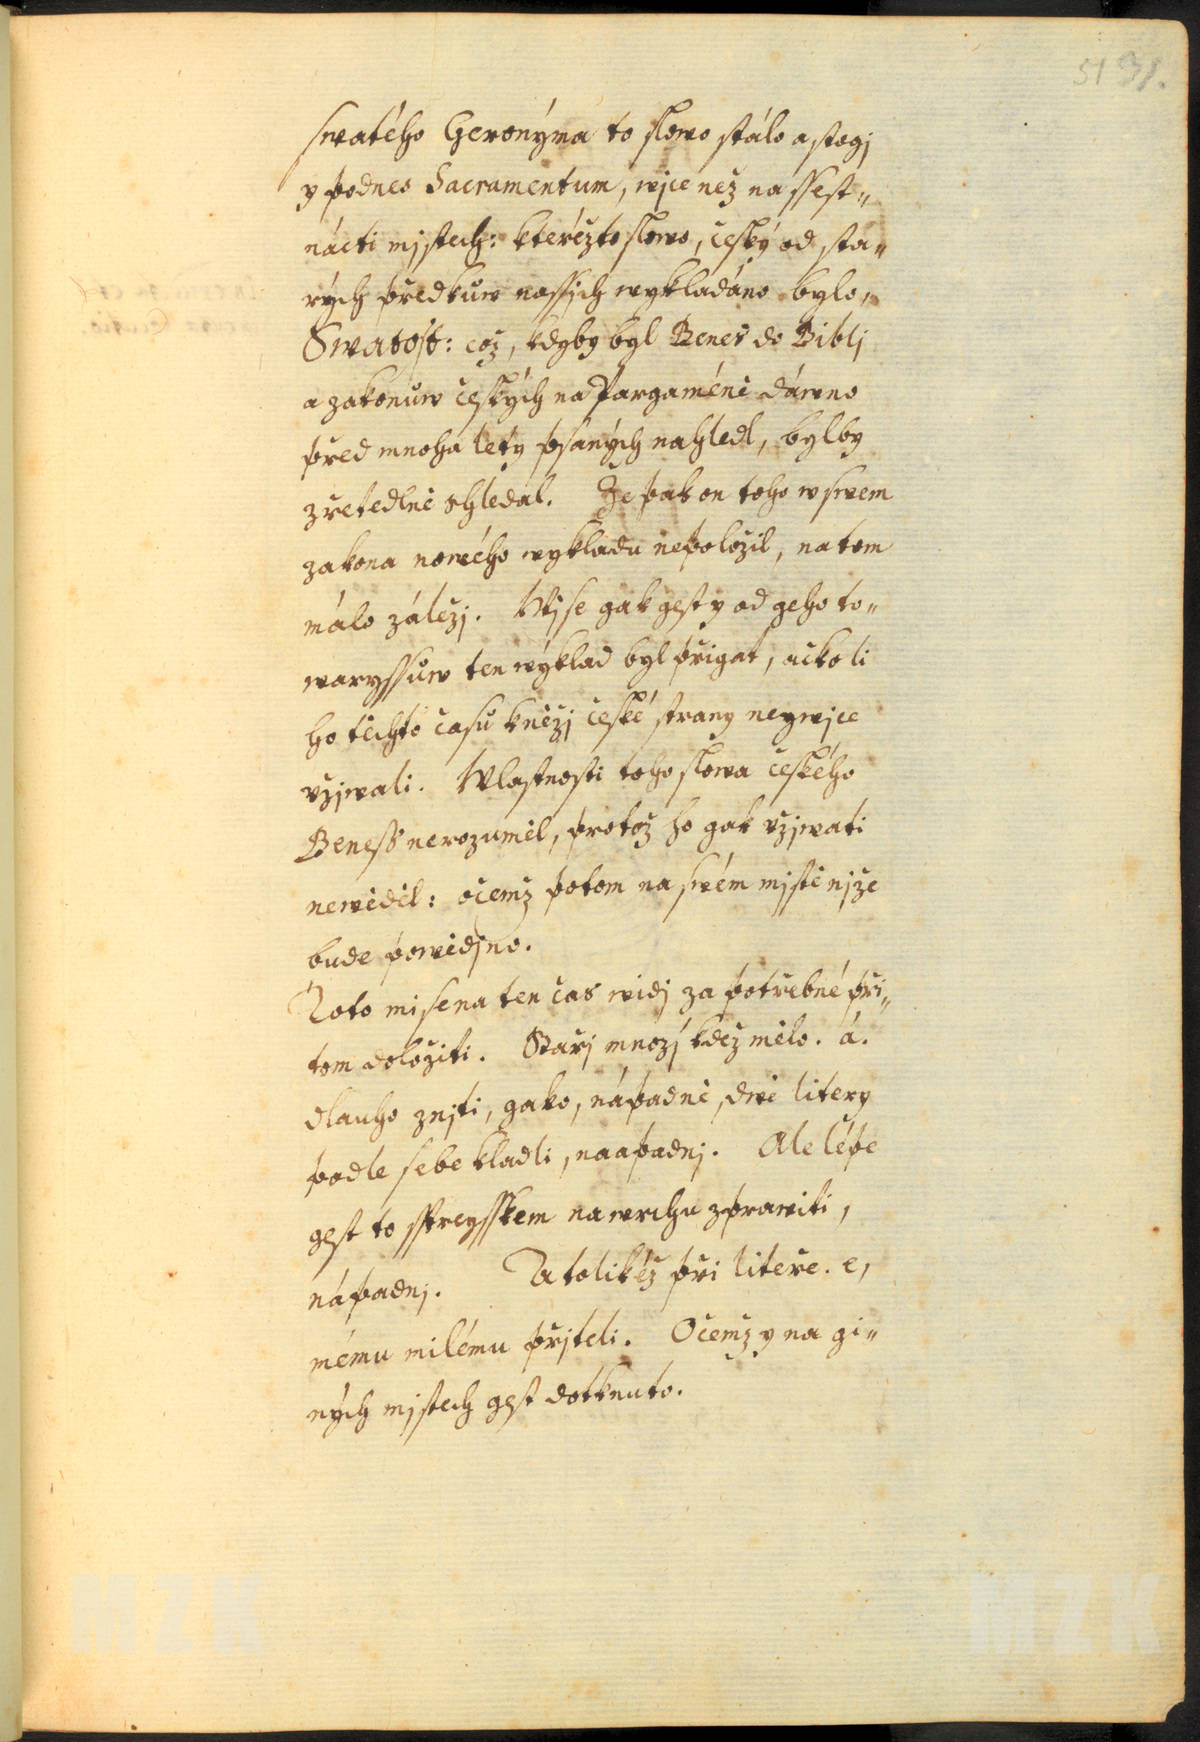 51 31.
swatého Geronýma to slowo stálo a stogj
y podnes Sacramentum, wjce než na ssest„
nácti mjstech: kteréžto slowo, český od sta„
rých předkůw nassich wykladáno bylo,
Swatost: což, kdyby byl Beneš do Biblj
a zakonůw českých na Pargaméně dáwno
před mnoha lety psaných nahledl, bylby
zřetedlně shledal. Že pak on toho w swem
zakona nowého wykladu nepoložil, na tom
málo záležj. Wjse gak gest y od geho to„
waryssůw ten wýklad byl přigat, ačkoli
ho těchto časů kněžj české strany neywjce
vžjwali. Wlastnosti toho slowa českého
Beness nerozuměl, protož ho gak vžjwati
newěděl: očemž potom na swém mjstě njže
bude powědjno.
Toto mi se na ten čas widj za potřebné při„
tom doložiti. Stařj mnozý kdež mělo. á.
dlauho znjti, gako, nápadně, dwě litery
podle sebe kladli, naapadnj. Ale lépe
gest to sstreysskem na wrchu zprawiti,
nápadnj. Tatolikéž při liteře. e,
mému milému přjteli. Očemž y na gi„
ných mjstech gest dotknuto.
MZK
MZK